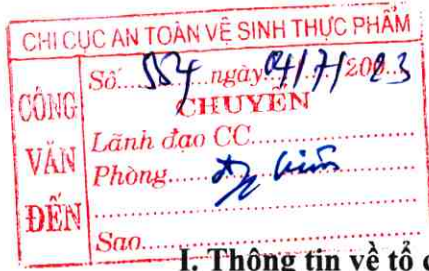 CHI CỤC AN TOÀN VỆ SINH THỰC PHẨM
CÔNG VĂN ĐẾN
Số 554 ngày 04/7/2023
CHUYỂN
Lãnh đạo CC
Phòng
Sao
I. Thông tin về tổ c